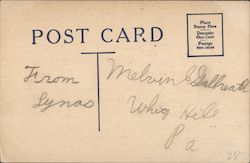 POST CARD
Place
Stamp Here
Domestic
One Cent
Foreign
two cents
From
Lynas
Melvin Galbreath
Whig Hill
Pa